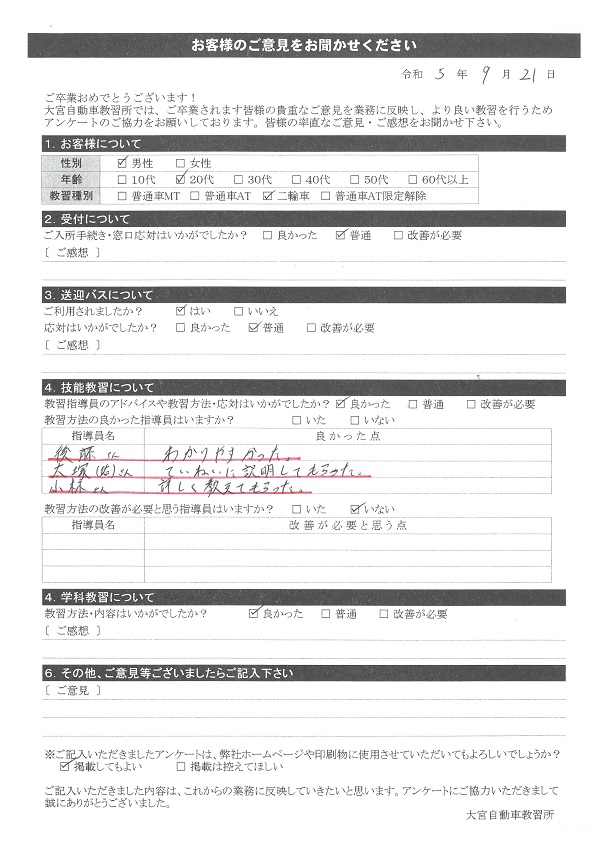 お客様のご意見をお聞かせください
令和 5 年 9 月 21 日
ご卒業おめでとうございます！
大宮自動車教習所では、ご卒業されます皆様の貴重なご意見を業務に反映し、より良い教習を行うため
アンケートのご協力をお願いしております。皆様の率直なご意見・ご感想をお聞かせ下さい。
1. お客様について
性別 ☑男性 □女性
年齢 □10代 ☑20代 □30代 □40代 □50代 □60代以上
教習種別 □普通車MT □普通車AT ☑二輪車 □普通車AT限定解除
2. 受付について
ご入所手続き・窓口応対はいかがでしたか？ □良かった ☑普通 □改善が必要
［ ご感想 ］
3. 送迎バスについて
ご利用されましたか？ ☑はい □いいえ
応対はいかがでしたか？ □良かった ☑普通 □改善が必要
［ ご感想 ］
4. 技能教習について
教習指導員のアドバイスや教習方法・応対はいかがでしたか？ ☑良かった □普通 □改善が必要
教習方法の良かった指導員はいますか？ □いた □いない
指導員名 良かった点
後藤さん わかりやすかった。
大塚(佑)さん ていねいに説明してもらった。
小林さん 詳しく教えてもらった。
教習方法の改善が必要と思う指導員はいますか？ □いた ☑いない
指導員名 改善が必要と思う点
4. 学科教習について
教習方法・内容はいかがでしたか？ ☑良かった □普通 □改善が必要
［ ご感想 ］
6. その他、ご意見等ございましたらご記入下さい
［ ご意見 ］
※ご記入いただきましたアンケートは、弊社ホームページや印刷物に使用させていただいてもよろしいでしょうか？
☑掲載してもよい □掲載は控えてほしい
ご記入いただきました内容は、これからの業務に反映していきたいと思います。アンケートにご協力いただきまして
誠にありがとうございました。
大宮自動車教習所